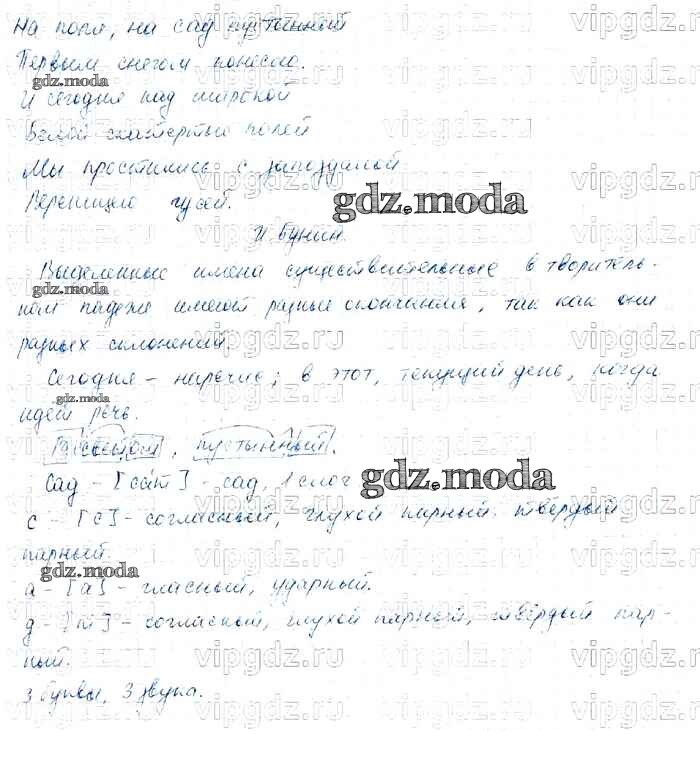 На поля, на сад пустынный
Первым снегом понесло.
И сегодня над широкой
Белой скатертью полей
Мы простились с запоздалой
Вереницею гусей.
И Бунин.
Выделенные имена существительные в творитель-
ном падеже имеют разные окончания, так как они
разных склонений.
Сегодня – наречие; в этот, текущий день, когда
идёт речь.
, пустынный.
Сад – [сат] – сад, 1 слог
с – [с] – согласный, глухой парный твёрдый
парный.
а – [а] – гласный, ударный.
д – [т] – согласный, глухой парный, твёрдый пар-
ный.
3 буквы, 3 звука.
gdz.moda
gdz.moda
gdz.moda
gdz.moda
gdz.moda
gdz.moda
gdz.moda
vipgdz.ru